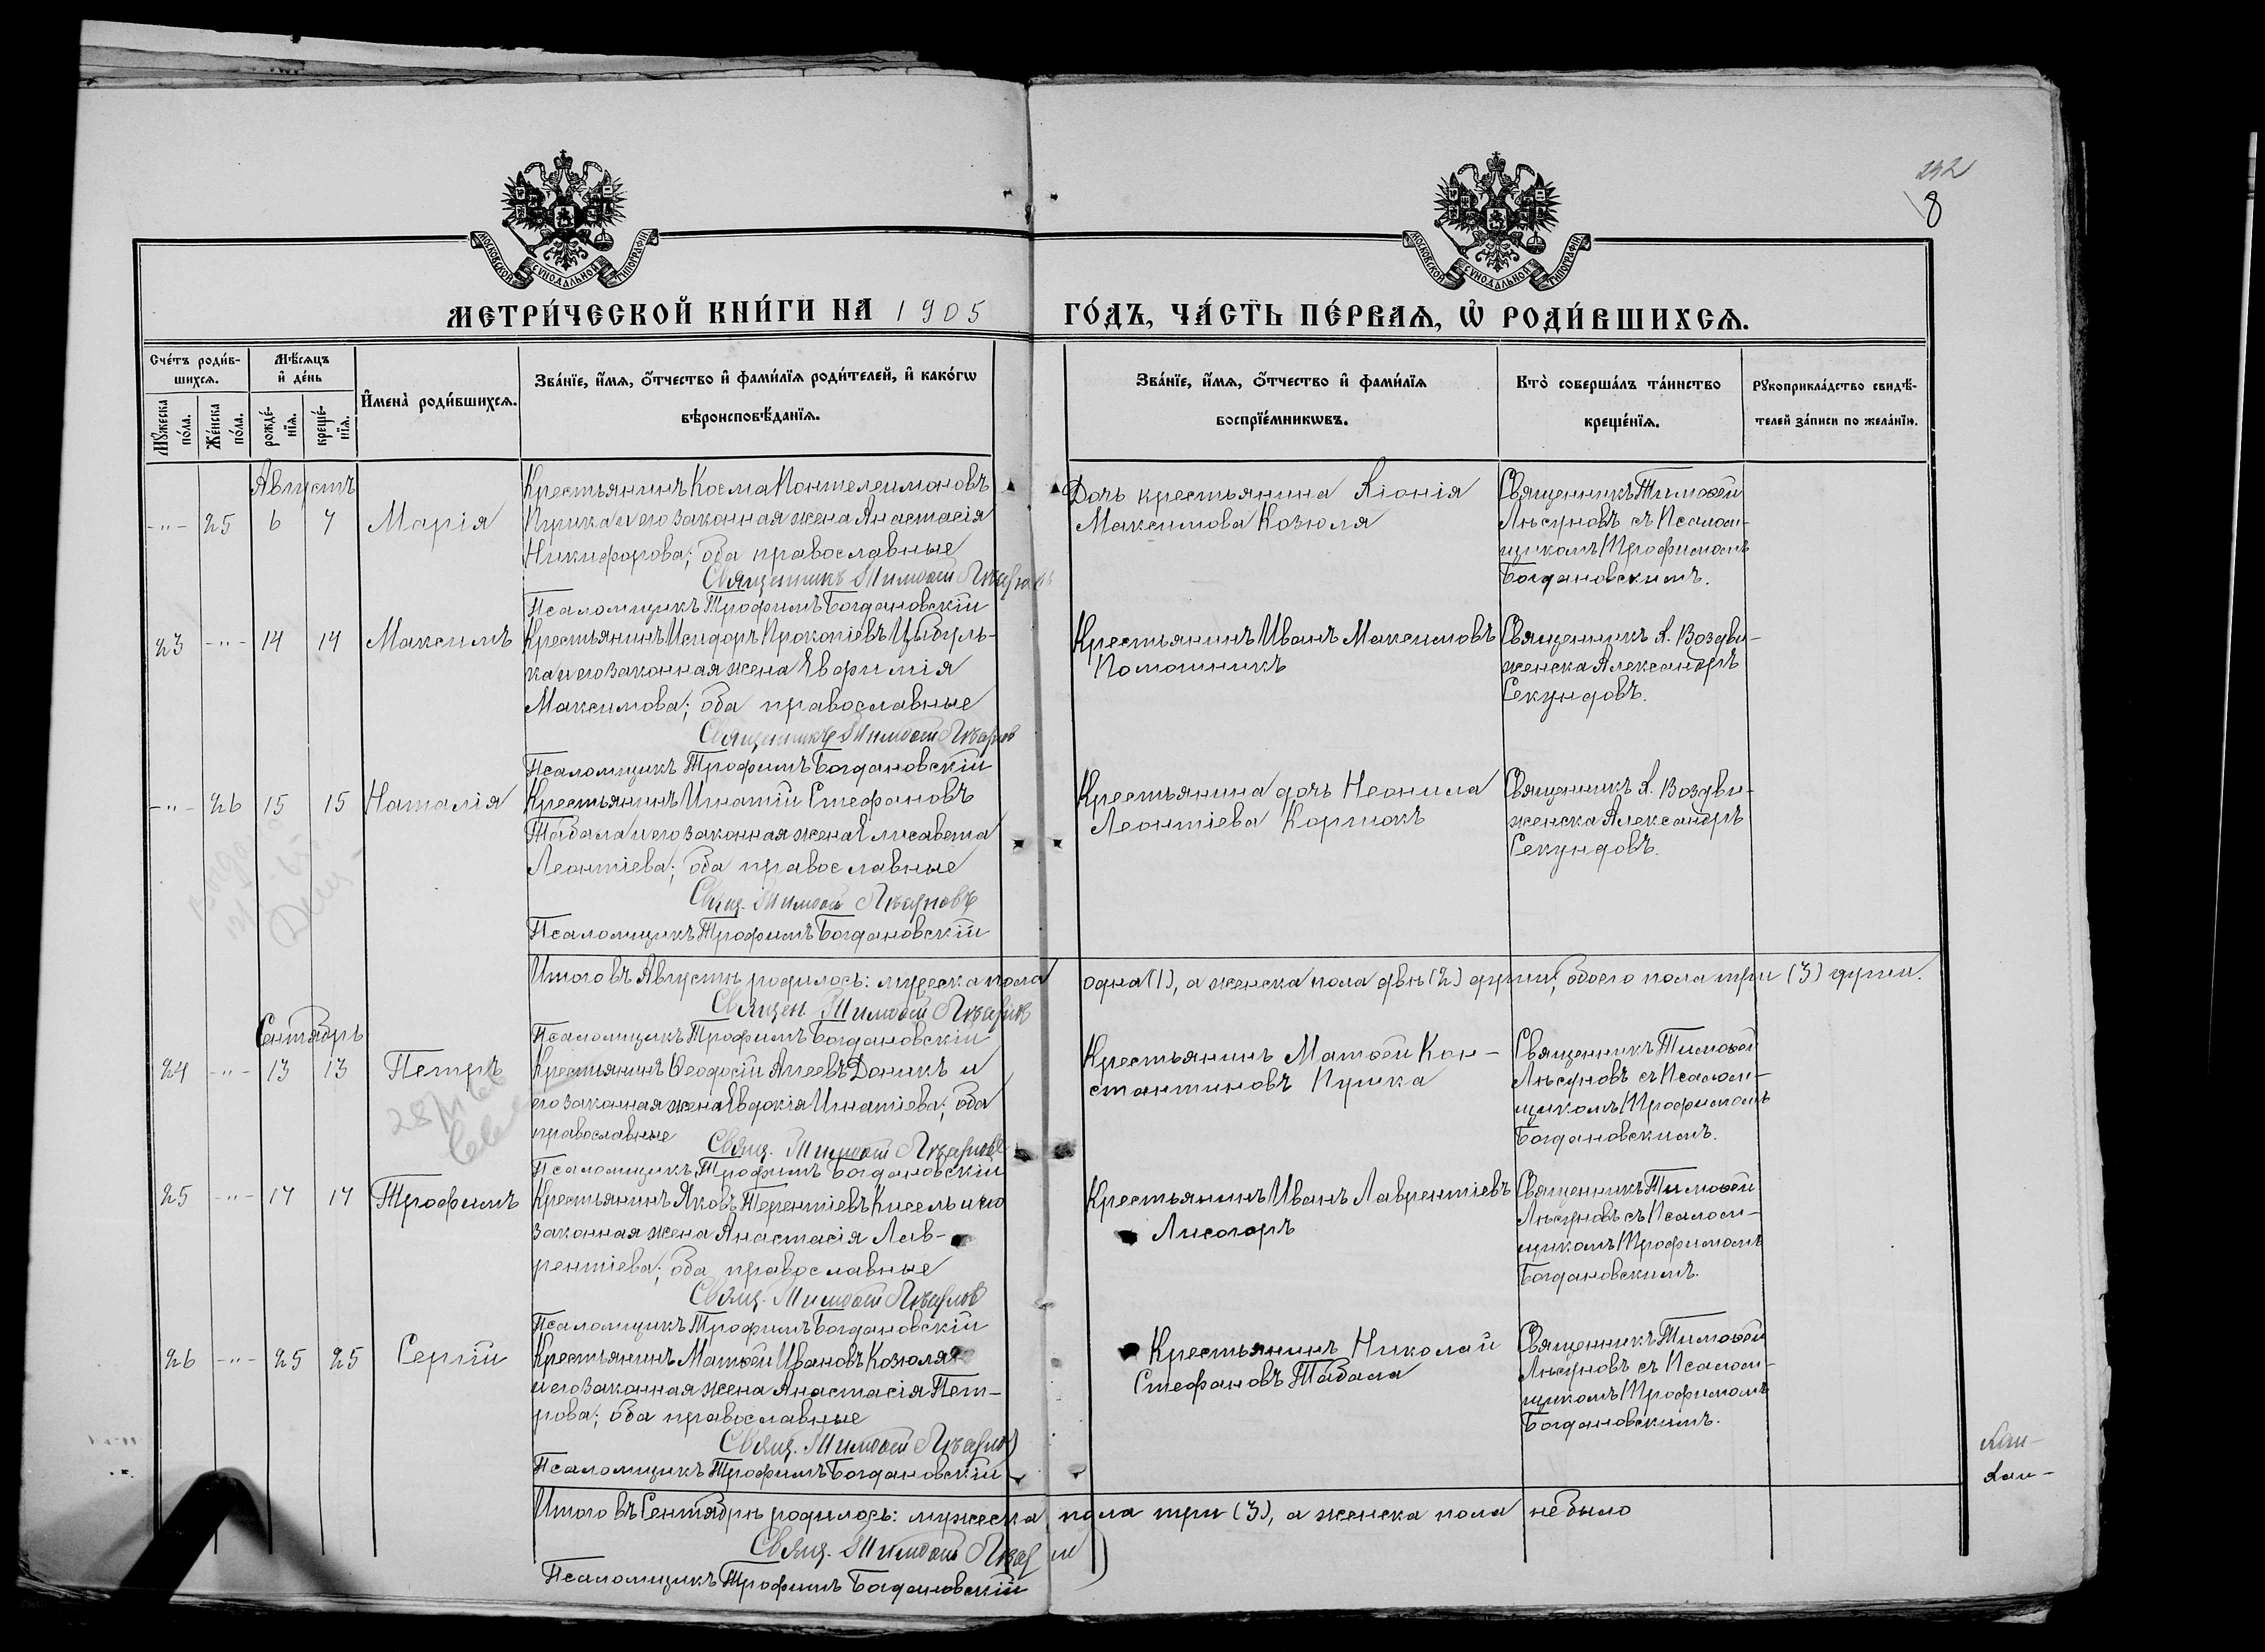 232
8
МОСКОВСКОЙ СУНОДАЛЬНОЙ ТИПОГРАФІИ
МОСКОВСКОЙ СУНОДАЛЬНОЙ ТИПОГРАФІИ
МЕТРИ́ЧЕСКОЙ КНИ́ГИ НА 1905
ГО́ДЪ, ЧА́СТЬ ПЕ́РВАѦ, Ѡ҆ РОДИ́ВШИХСѦ.
Сче́тъ роди́в-
шихсѧ.
Мѣ́сѧцъ
и҆ де́нь
Мꙋ́жеска
по́ла.
Же́нска
по́ла.
рожде́-
нїѧ.
креще́-
нїѧ.
И҆мена̀ роди́вшихсѧ.
Зва́нїе, и҆́мѧ, ѻ҆́тчество и҆ фами́лїѧ роди́телей, и҆ како́гѡ
вѣроисповѣ́данїѧ.
Зва́нїе, и҆́мѧ, ѻ҆́тчество и҆ фами́лїѧ
воспрїе́мникѡвъ.
Кто̀ соверша́лъ та́инство
креще́нїѧ.
Рꙋкоприкла́дство свидѣ́-
телей за́писи по жела́нїю.
Августъ
-"- 25 6 7 Марія
Крестьянинъ Косма Понтелеимоновъ
Пушка и его законная жена Анастасія
Никифорова; оба православные
Священникъ Тимоѳей Лѣсуновъ
Псаломщикъ Трофимъ Богдановскій
Дочь крестьянина Хіонія
Максимова Козюля
Священникъ Тимоѳей
Лѣсуновъ съ Псалом-
щикомъ Трофимомъ
Богдановскимъ.
23 -"- 14 14 Максимъ
Крестьянинъ Исидоръ Прокопіевъ Цыбуль-
ка и его законная жена Евфимія
Максимова; оба православные
Священникъ Тимоѳей Лѣсуновъ
Псаломщикъ Трофимъ Богдановскій
Крестьянинъ Иванъ Максимовъ
Помошникъ
Священникъ х. Воздви-
женска Александръ
Секундовъ.
-"- 26 15 15 Наталія
Крестьянинъ Игнатій Стефановъ
Табала и его законная жена Елисавета
Леонтіева; оба православные
Свящ. Тимоѳей Лѣсуновъ
Псаломщикъ Трофимъ Богдановскій
Крестьянина дочь Неонила
Леонтіева Коршокъ
Священникъ х. Воздви-
женска Александръ
Секундовъ.
Итого въ Августѣ родилось: мужеска пола одна (1), а женска пола двѣ (2) души; обоего пола три (3) души.
Священ. Тимоѳей Лѣсуновъ
Псаломщикъ Трофимъ Богдановскій
Сентябрь
24 -"- 13 13 Петръ
Крестьянинъ Ѳеодосій Агеевъ Доникъ и
его законная жена Евдокія Игнатіева; оба
православные
Свящ. Тимоѳей Лѣсуновъ
Псаломщикъ Трофимъ Богдановскій
Крестьянинъ Матѳей Кон-
стантиновъ Пушка
Священникъ Тимоѳей
Лѣсуновъ съ Псалом-
щикомъ Трофимомъ
Богдановскимъ.
25 -"- 17 17 Трофимъ
Крестьянинъ Яковъ Терентіевъ Кисель и его
законная жена Анастасія Лав-
рентіева; оба православные
Свящ. Тимоѳей Лѣсуновъ
Псаломщикъ Трофимъ Богдановскій
Крестьянинъ Иванъ Лаврентіевъ
Лисогоръ
Священникъ Тимоѳей
Лѣсуновъ съ Псалом-
щикомъ Трофимомъ
Богдановскимъ.
26 -"- 25 25 Сергій
Крестьянинъ Матѳей Ивановъ Козюля
и его законная жена Анастасія Пет-
рова; оба православные
Свящ. Тимоѳей Лѣсуновъ
Псаломщикъ Трофимъ Богдановскій
Крестьянинъ Николай
Стефановъ Табала
Священникъ Тимоѳей
Лѣсуновъ съ Псалом-
щикомъ Трофимомъ
Богдановскимъ.
Итого въ Сентябрѣ родилось: мужеска пола три (3), а женска пола не было
Свящ. Тимоѳей Лѣсуновъ
Псаломщикъ Трофимъ Богдановскій